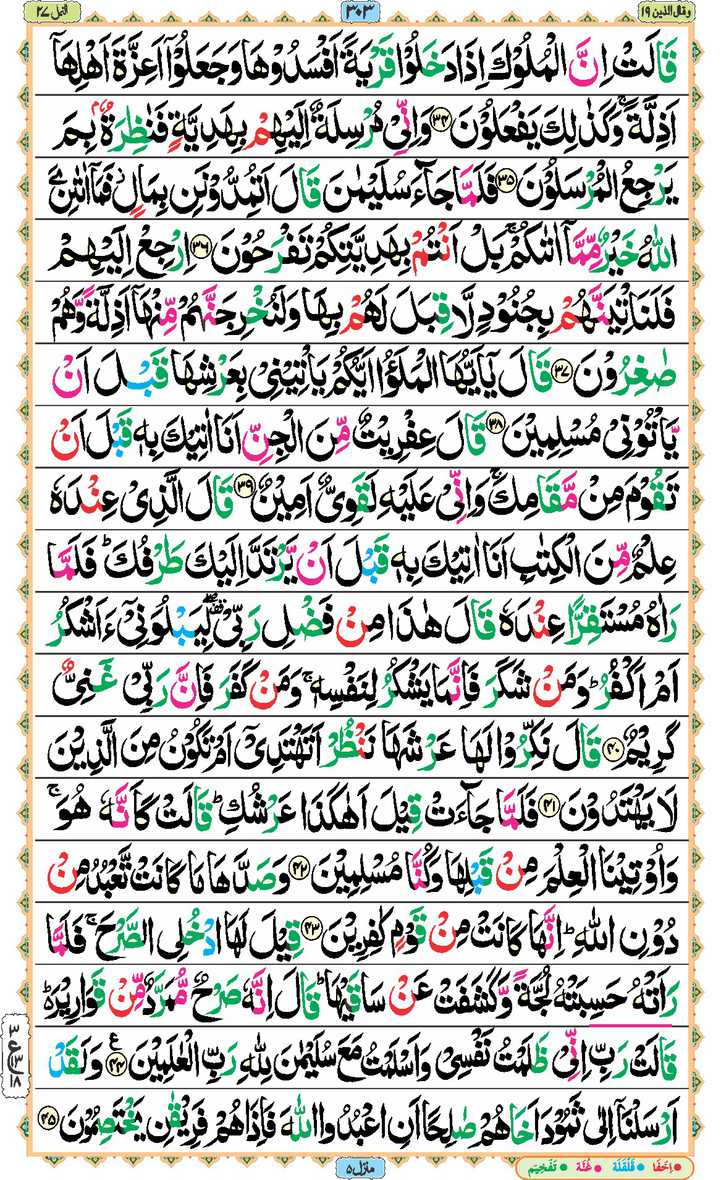 وقال الذین ۱۹
۳۰۳
النمل ۲۷
قَالَتْ اِنَّ الْمُلُوْكَ اِذَا دَخَلُوْا قَرْیَةً اَفْسَدُوْهَا وَجَعَلُوْۤا اَعِزَّةَ اَهْلِهَاۤ
اَذِلَّةً ۚ وَكَذٰلِكَ یَفْعَلُوْنَ ﴿۳۴﴾ وَاِنِّیْ مُرْسِلَةٌ اِلَیْهِمْ بِهَدِیَّةٍ فَنٰظِرَةٌۢ بِمَ
یَرْجِعُ الْمُرْسَلُوْنَ ﴿۳۵﴾ فَلَمَّا جَآءَ سُلَیْمٰنَ قَالَ اَتُمِدُّوْنَنِ بِمَالٍ ؗ فَمَاۤ اٰتٰىنِۦَ
اللّٰهُ خَیْرٌ مِّمَّاۤ اٰتٰىكُمْ ۚ بَلْ اَنْتُمْ بِهَدِیَّتِكُمْ تَفْرَحُوْنَ ﴿۳۶﴾ اِرْجِعْ اِلَیْهِمْ
فَلَنَاْتِیَنَّهُمْ بِجُنُوْدٍ لَّا قِبَلَ لَهُمْ بِهَا وَلَنُخْرِجَنَّهُمْ مِّنْهَاۤ اَذِلَّةً وَّهُمْ
صٰغِرُوْنَ ﴿۳۷﴾ قَالَ یٰۤاَیُّهَا الْمَلَؤُا اَیُّكُمْ یَاْتِیْنِیْ بِعَرْشِهَا قَبْلَ اَنْ
یَّاْتُوْنِیْ مُسْلِمِیْنَ ﴿۳۸﴾ قَالَ عِفْرِیْتٌ مِّنَ الْجِنِّ اَنَا اٰتِیْكَ بِهٖ قَبْلَ اَنْ
تَقُوْمَ مِنْ مَّقَامِكَ ۚ وَاِنِّیْ عَلَیْهِ لَقَوِیٌّ اَمِیْنٌ ﴿۳۹﴾ قَالَ الَّذِیْ عِنْدَهٗ
عِلْمٌ مِّنَ الْكِتٰبِ اَنَا اٰتِیْكَ بِهٖ قَبْلَ اَنْ یَّرْتَدَّ اِلَیْكَ طَرْفُكَ ؕ فَلَمَّا
رَاٰهُ مُسْتَقِرًّا عِنْدَهٗ قَالَ هٰذَا مِنْ فَضْلِ رَبِّیْ ۫ۖ لِیَبْلُوَنِیْۤ ءَاَشْكُرُ
اَمْ اَكْفُرُ ؕ وَمَنْ شَكَرَ فَاِنَّمَا یَشْكُرُ لِنَفْسِهٖ ۚ وَمَنْ كَفَرَ فَاِنَّ رَبِّیْ غَنِیٌّ
كَرِیْمٌ ﴿۴۰﴾ قَالَ نَكِّرُوْا لَهَا عَرْشَهَا نَنْظُرْ اَتَهْتَدِیْۤ اَمْ تَكُوْنُ مِنَ الَّذِیْنَ
لَا یَهْتَدُوْنَ ﴿۴۱﴾ فَلَمَّا جَآءَتْ قِیْلَ اَهٰكَذَا عَرْشُكِ ؕ قَالَتْ كَاَنَّهٗ هُوَ ۚ
وَاُوْتِیْنَا الْعِلْمَ مِنْ قَبْلِهَا وَكُنَّا مُسْلِمِیْنَ ﴿۴۲﴾ وَصَدَّهَا مَا كَانَتْ تَّعْبُدُ مِنْ
دُوْنِ اللّٰهِ ؕ اِنَّهَا كَانَتْ مِنْ قَوْمٍ كٰفِرِیْنَ ﴿۴۳﴾ قِیْلَ لَهَا ادْخُلِی الصَّرْحَ ۚ فَلَمَّا
رَاَتْهُ حَسِبَتْهُ لُجَّةً وَّكَشَفَتْ عَنْ سَاقَیْهَا ؕ قَالَ اِنَّهٗ صَرْحٌ مُّمَرَّدٌ مِّنْ قَوَارِیْرَ ؕ۬
قَالَتْ رَبِّ اِنِّیْ ظَلَمْتُ نَفْسِیْ وَاَسْلَمْتُ مَعَ سُلَیْمٰنَ لِلّٰهِ رَبِّ الْعٰلَمِیْنَ ﴿۴۴﴾ ع وَلَقَدْ
اَرْسَلْنَاۤ اِلٰی ثَمُوْدَ اَخَاهُمْ صٰلِحًا اَنِ اعْبُدُوا اللّٰهَ فَاِذَا هُمْ فَرِیْقٰنِ یَخْتَصِمُوْنَ ﴿۴۵﴾
منزل ۵
اِخْفَا قَلْقَلَه غُنَّه تَفْخِیْم